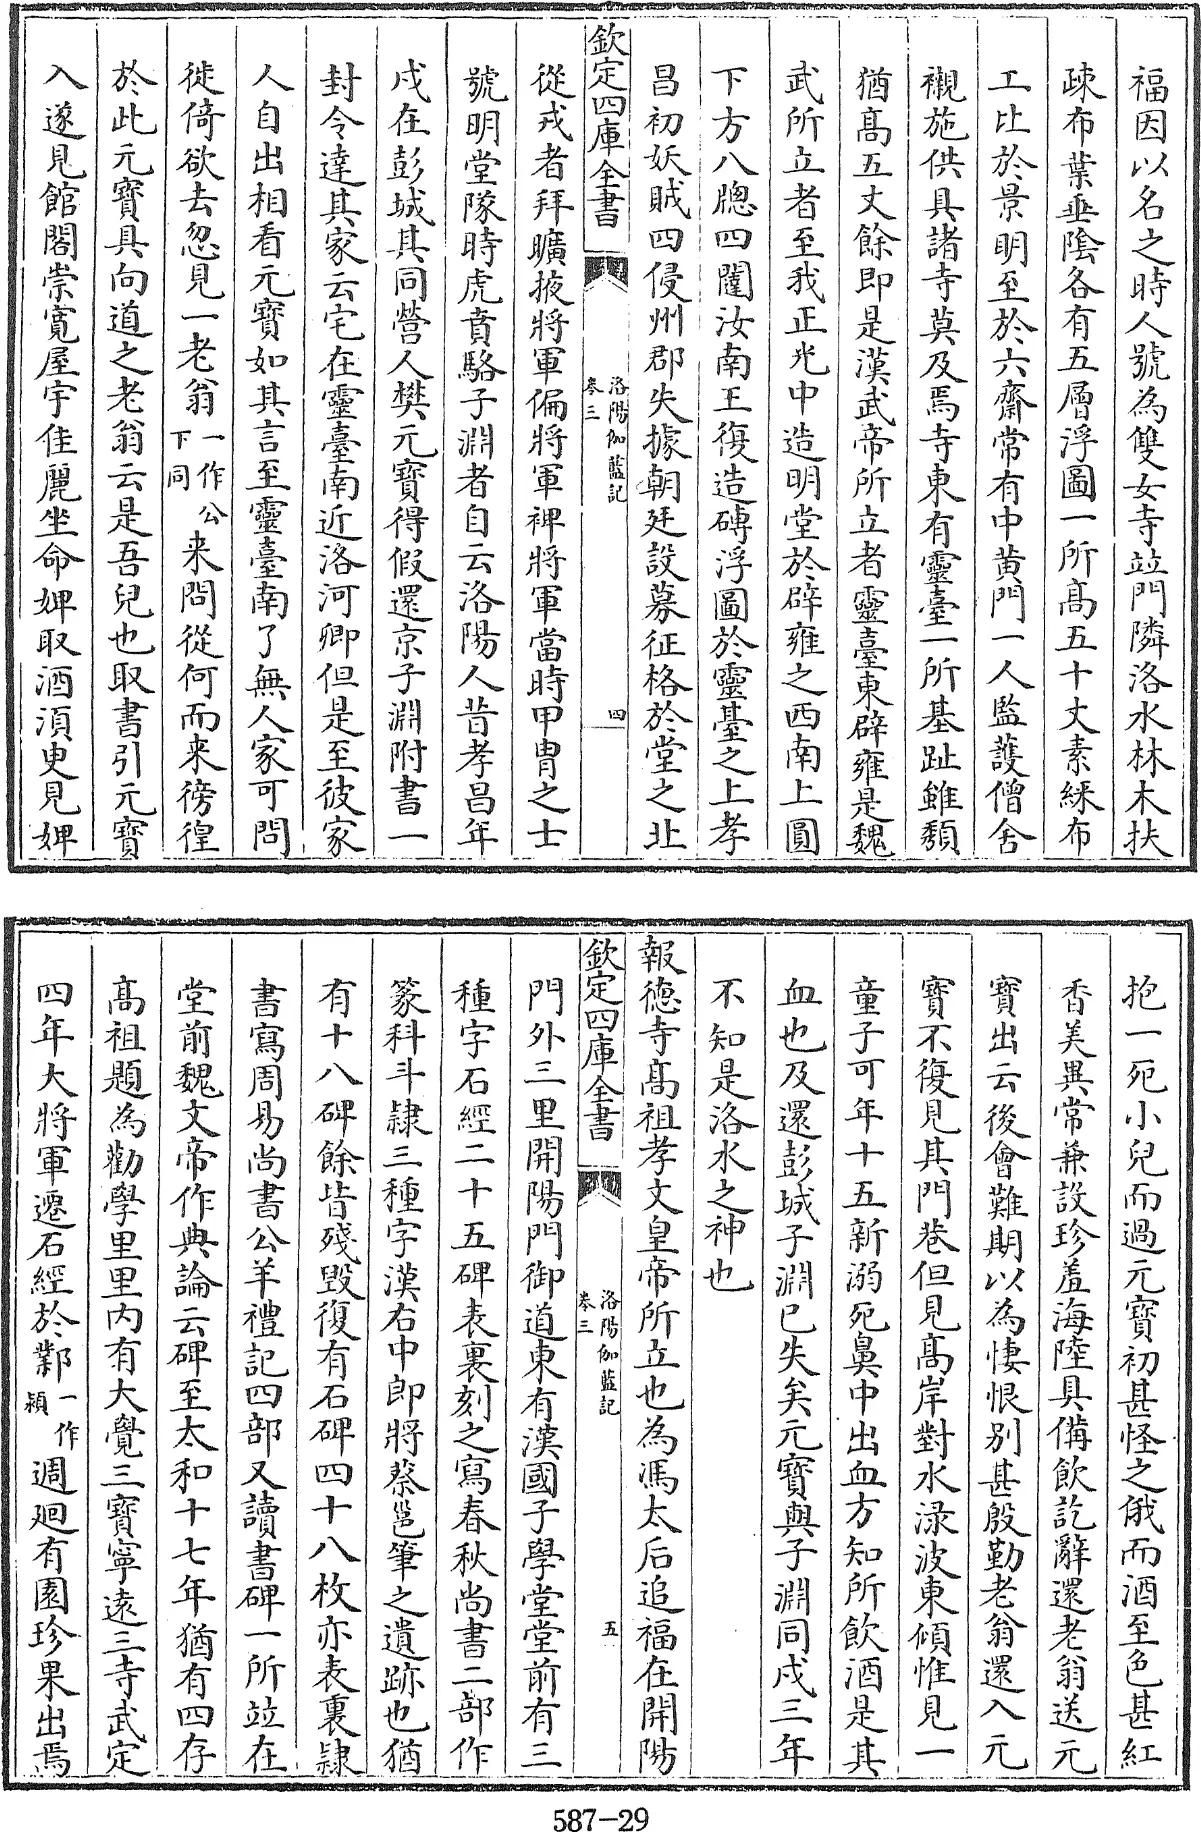 福因以名之時人號為雙女寺竝門隣洛水林木扶
疎布葉垂陰各有五層浮圖一所髙五十丈素綵布
工比於景明至於六齋常有中黄門一人監護僧舍
襯施供具諸寺莫及焉寺東有靈臺一所基趾雖頽
猶髙五丈餘即是漢武帝所立者靈臺東辟雍是魏
武所立者至我正光中造明堂於辟雍之西南上圓
下方八牕四闥汝南王復造磚浮圖於靈臺之上孝
昌初妖賊四侵州郡失據朝廷設募征格於堂之北
欽定四庫全書
洛陽伽藍記
卷三
四
從戎者拜曠掖將軍偏將軍裨將軍當時甲胄之士
號明堂隊時虎賁駱子淵者自云洛陽人昔孝昌年
戍在彭城其同營人樊元寶得假還京子淵附書一
封令達其家云宅在靈臺南近洛河卿但是至彼家
人自出相看元寶如其言至靈臺南了無人家可問
徙倚欲去忽見一老翁一作公下同来問從何而来徬徨
於此元寶具向道之老翁云是吾兒也取書引元寶
入遂見館閣崇寛屋宇佳麗坐命婢取酒湏臾見婢
抱一死小兒而過元寶初甚怪之俄而酒至色甚紅
香美異常兼設珍羞海陸具備飲訖辭還老翁送元
寶出云後會難期以為悽恨别甚殷勤老翁還入元
寶不復見其門巷但見髙岸對水渌波東傾惟見一
童子可年十五新溺死鼻中出血方知所飲酒是其
血也及還彭城子淵已失矣元寶與子淵同戍三年
不知是洛水之神也
報德寺髙祖孝文皇帝所立也為馮太后追福在開陽
欽定四庫全書
洛陽伽藍記
卷三
五
門外三里開陽門御道東有漢國子學堂堂前有三
種字石經二十五碑表裏刻之寫春秋尚書二部作
篆科斗隸三種字漢右中郎將蔡邕筆之遺跡也猶
有十八碑餘皆殘毁復有石碑四十八枚亦表裏隸
書寫周易尚書公羊禮記四部又讀書碑一所竝在
堂前魏文帝作典論云碑至太和十七年猶有四存
髙祖題為勸學里里内有大覺三寶寧逺三寺武定
四年大將軍遷石經於鄴一作潁週廻有園珍果出焉
587-29